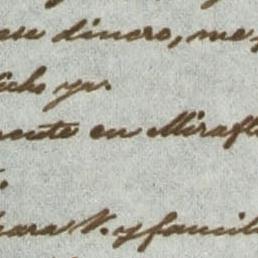 ese dinero, me
dicho ya.
mente en Mirafl
para V. y famili